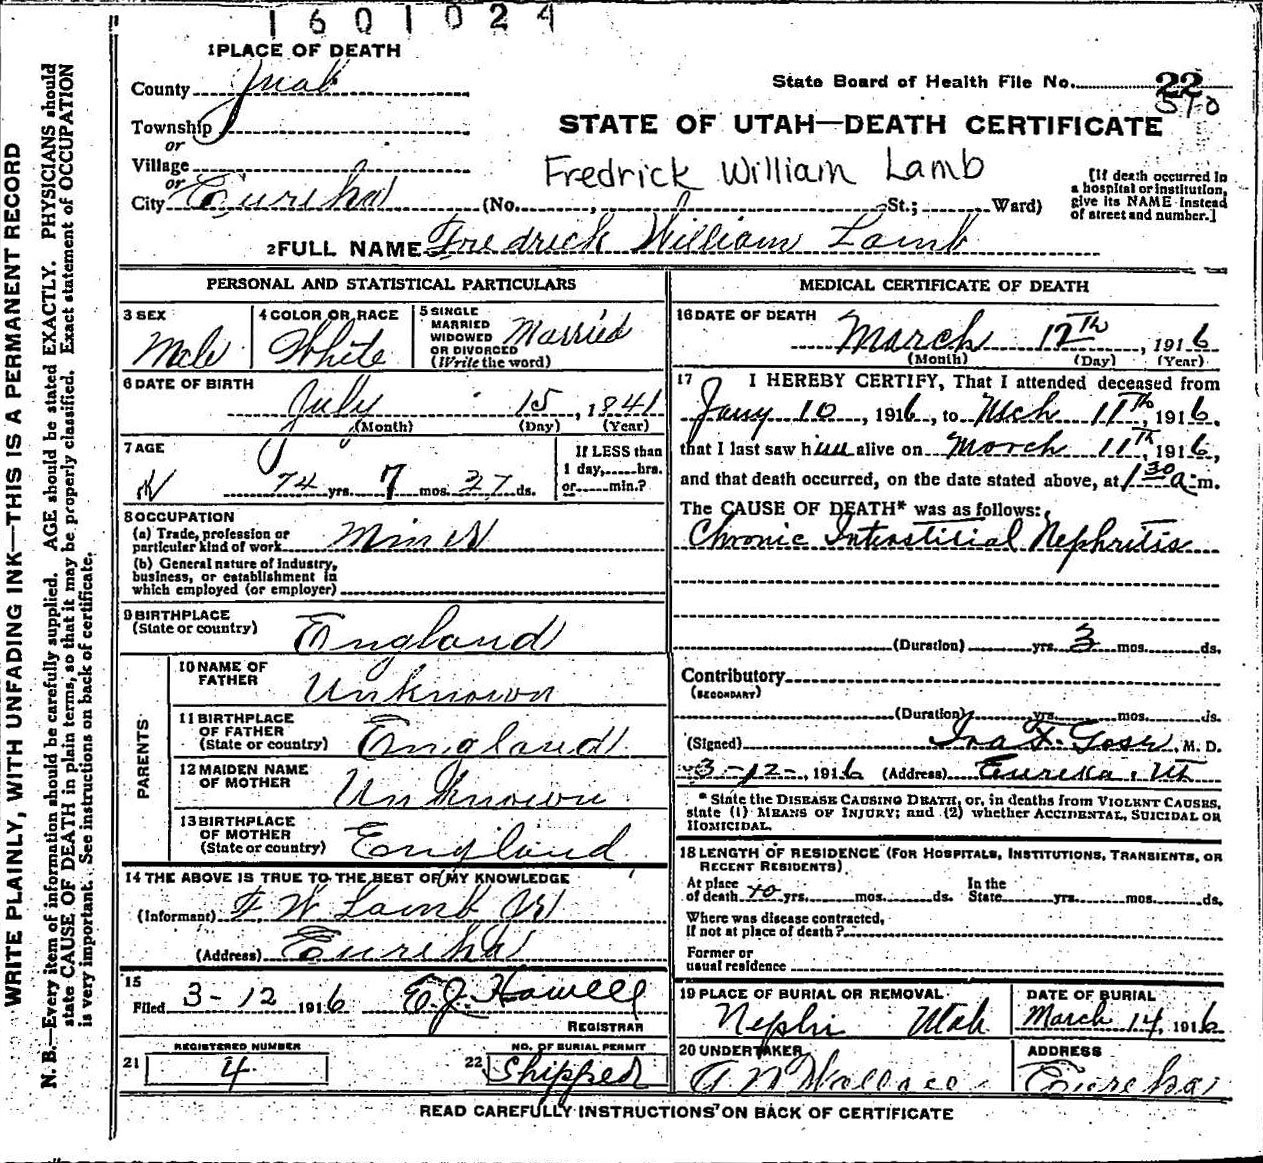 1601024
1 PLACE OF DEATH
County Juab
State Board of Health File No. 22
570
Township
or
Village
or
City Eureka (No. , St.; Ward)
STATE OF UTAH—DEATH CERTIFICATE
Fredrick William Lamb
[If death occurred in
a hospital or institution,
give its NAME instead
of street and number.]
2 FULL NAME Fredrick William Lamb
PERSONAL AND STATISTICAL PARTICULARS
3 SEX
Male
4 COLOR OR RACE
White
5 SINGLE
MARRIED
WIDOWED
OR DIVORCED
(Write the word)
Married
6 DATE OF BIRTH
July 15, 1841
(Month) (Day) (Year)
7 AGE
74 yrs. 7 mos. 27 ds.
If LESS than
1 day, hrs.
or min.?
8 OCCUPATION
(a) Trade, profession or
particular kind of work Miner
(b) General nature of Industry,
business, or establishment in
which employed (or employer)
9 BIRTHPLACE
(State or country) England
PARENTS
10 NAME OF
FATHER Unknown
11 BIRTHPLACE
OF FATHER
(State or country) England
12 MAIDEN NAME
OF MOTHER Unknown
13 BIRTHPLACE
OF MOTHER
(State or country) England
14 THE ABOVE IS TRUE TO THE BEST OF MY KNOWLEDGE
(Informant) F. W. Lamb Jr
(Address) Eureka
15
Filed 3-12 1916 E. J. Howell
REGISTRAR
21 REGISTERED NUMBER
4
22 NO. OF BURIAL PERMIT
Shipped
MEDICAL CERTIFICATE OF DEATH
16 DATE OF DEATH
March 12th, 1916
(Month) (Day) (Year)
17 I HEREBY CERTIFY, That I attended deceased from
Jany 10, 1916, to Mch 11th, 1916,
that I last saw him alive on March 11th, 1916,
and that death occurred, on the date stated above, at 1 30 a. m.
The CAUSE OF DEATH* was as follows:
Chronic Interstitial Nephritis
(Duration) yrs. 3 mos. ds.
Contributory
(SECONDARY)
(Duration) yrs. mos. ds.
(Signed) Ira F. , M. D.
3-12-, 1916 (Address) Eureka, Ut
* State the DISEASE CAUSING DEATH, or, in deaths from VIOLENT CAUSES,
state (1) MEANS OF INJURY; and (2) whether ACCIDENTAL, SUICIDAL OR
HOMICIDAL.
18 LENGTH OF RESIDENCE (FOR HOSPITALS, INSTITUTIONS, TRANSIENTS, OR
RECENT RESIDENTS).
At place
of death 40 yrs. mos. ds.
In the
State yrs. mos. ds.
Where was disease contracted,
If not at place of death?
Former or
usual residence
19 PLACE OF BURIAL OR REMOVAL
Nephi Utah
DATE OF BURIAL
March 14, 1916
20 UNDERTAKER
A N Wallace
ADDRESS
Eureka
READ CAREFULLY INSTRUCTIONS ON BACK OF CERTIFICATE
WRITE PLAINLY, WITH UNFADING INK—THIS IS A PERMANENT RECORD
N. B.—Every item of information should be carefully supplied. AGE should be stated EXACTLY. PHYSICIANS should
state CAUSE OF DEATH in plain terms, so that it may be properly classified. Exact statement of OCCUPATION
is very important. See instructions on back of certificate.